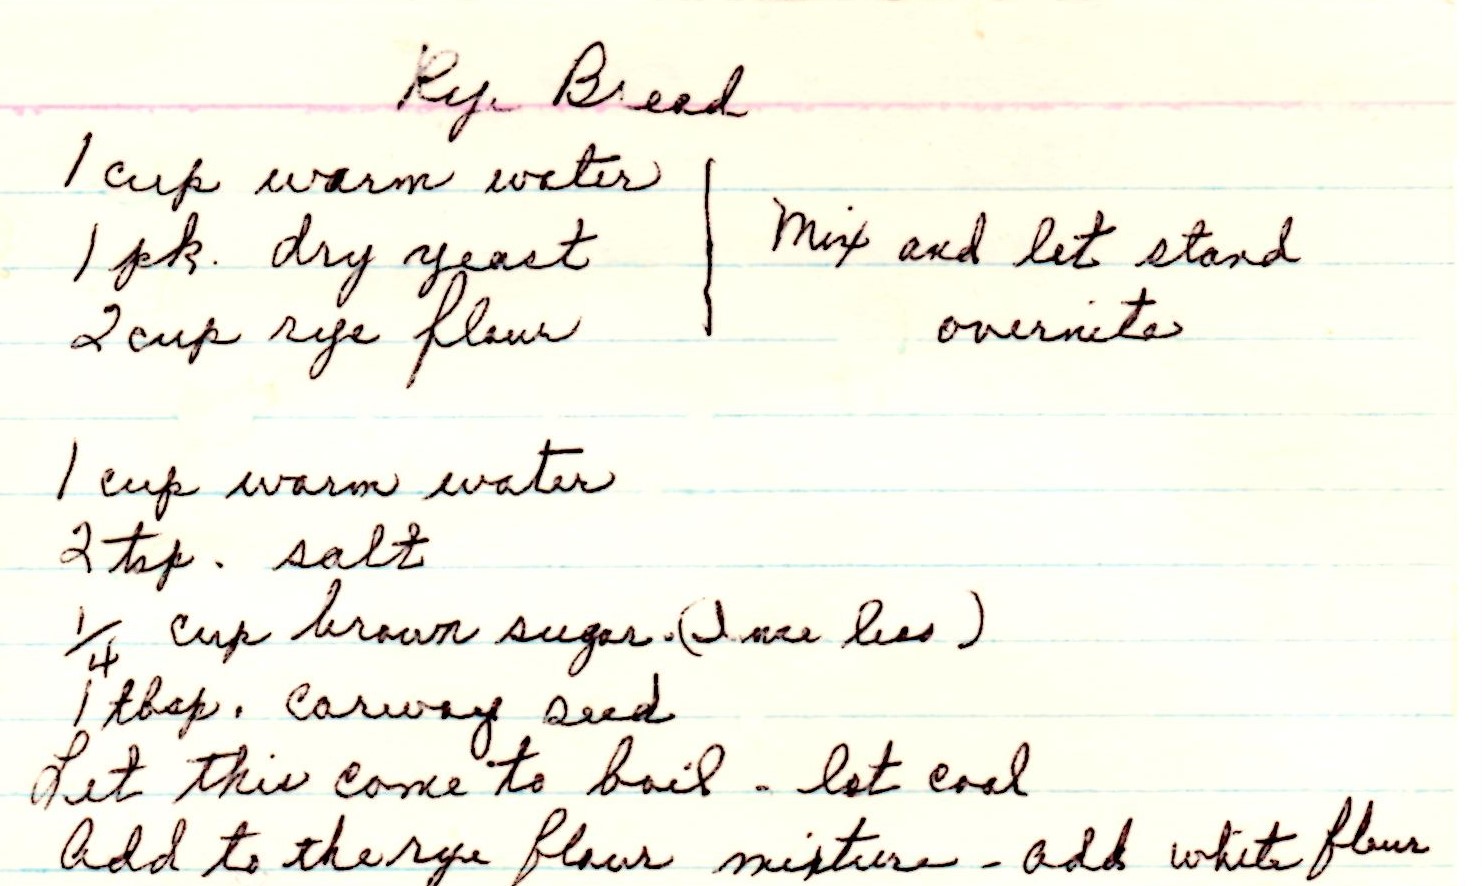 Rye Bread
1 cup warm water
1 pk. dry yeast
2 cup rye flour
Mix and let stand
overnite
1 cup warm water
2 tsp. salt
1/4 cup brown sugar. (I use less)
1 tbsp. carway seed
Let this come to boil - let cool
Add to the rye flour mixture - add white flour